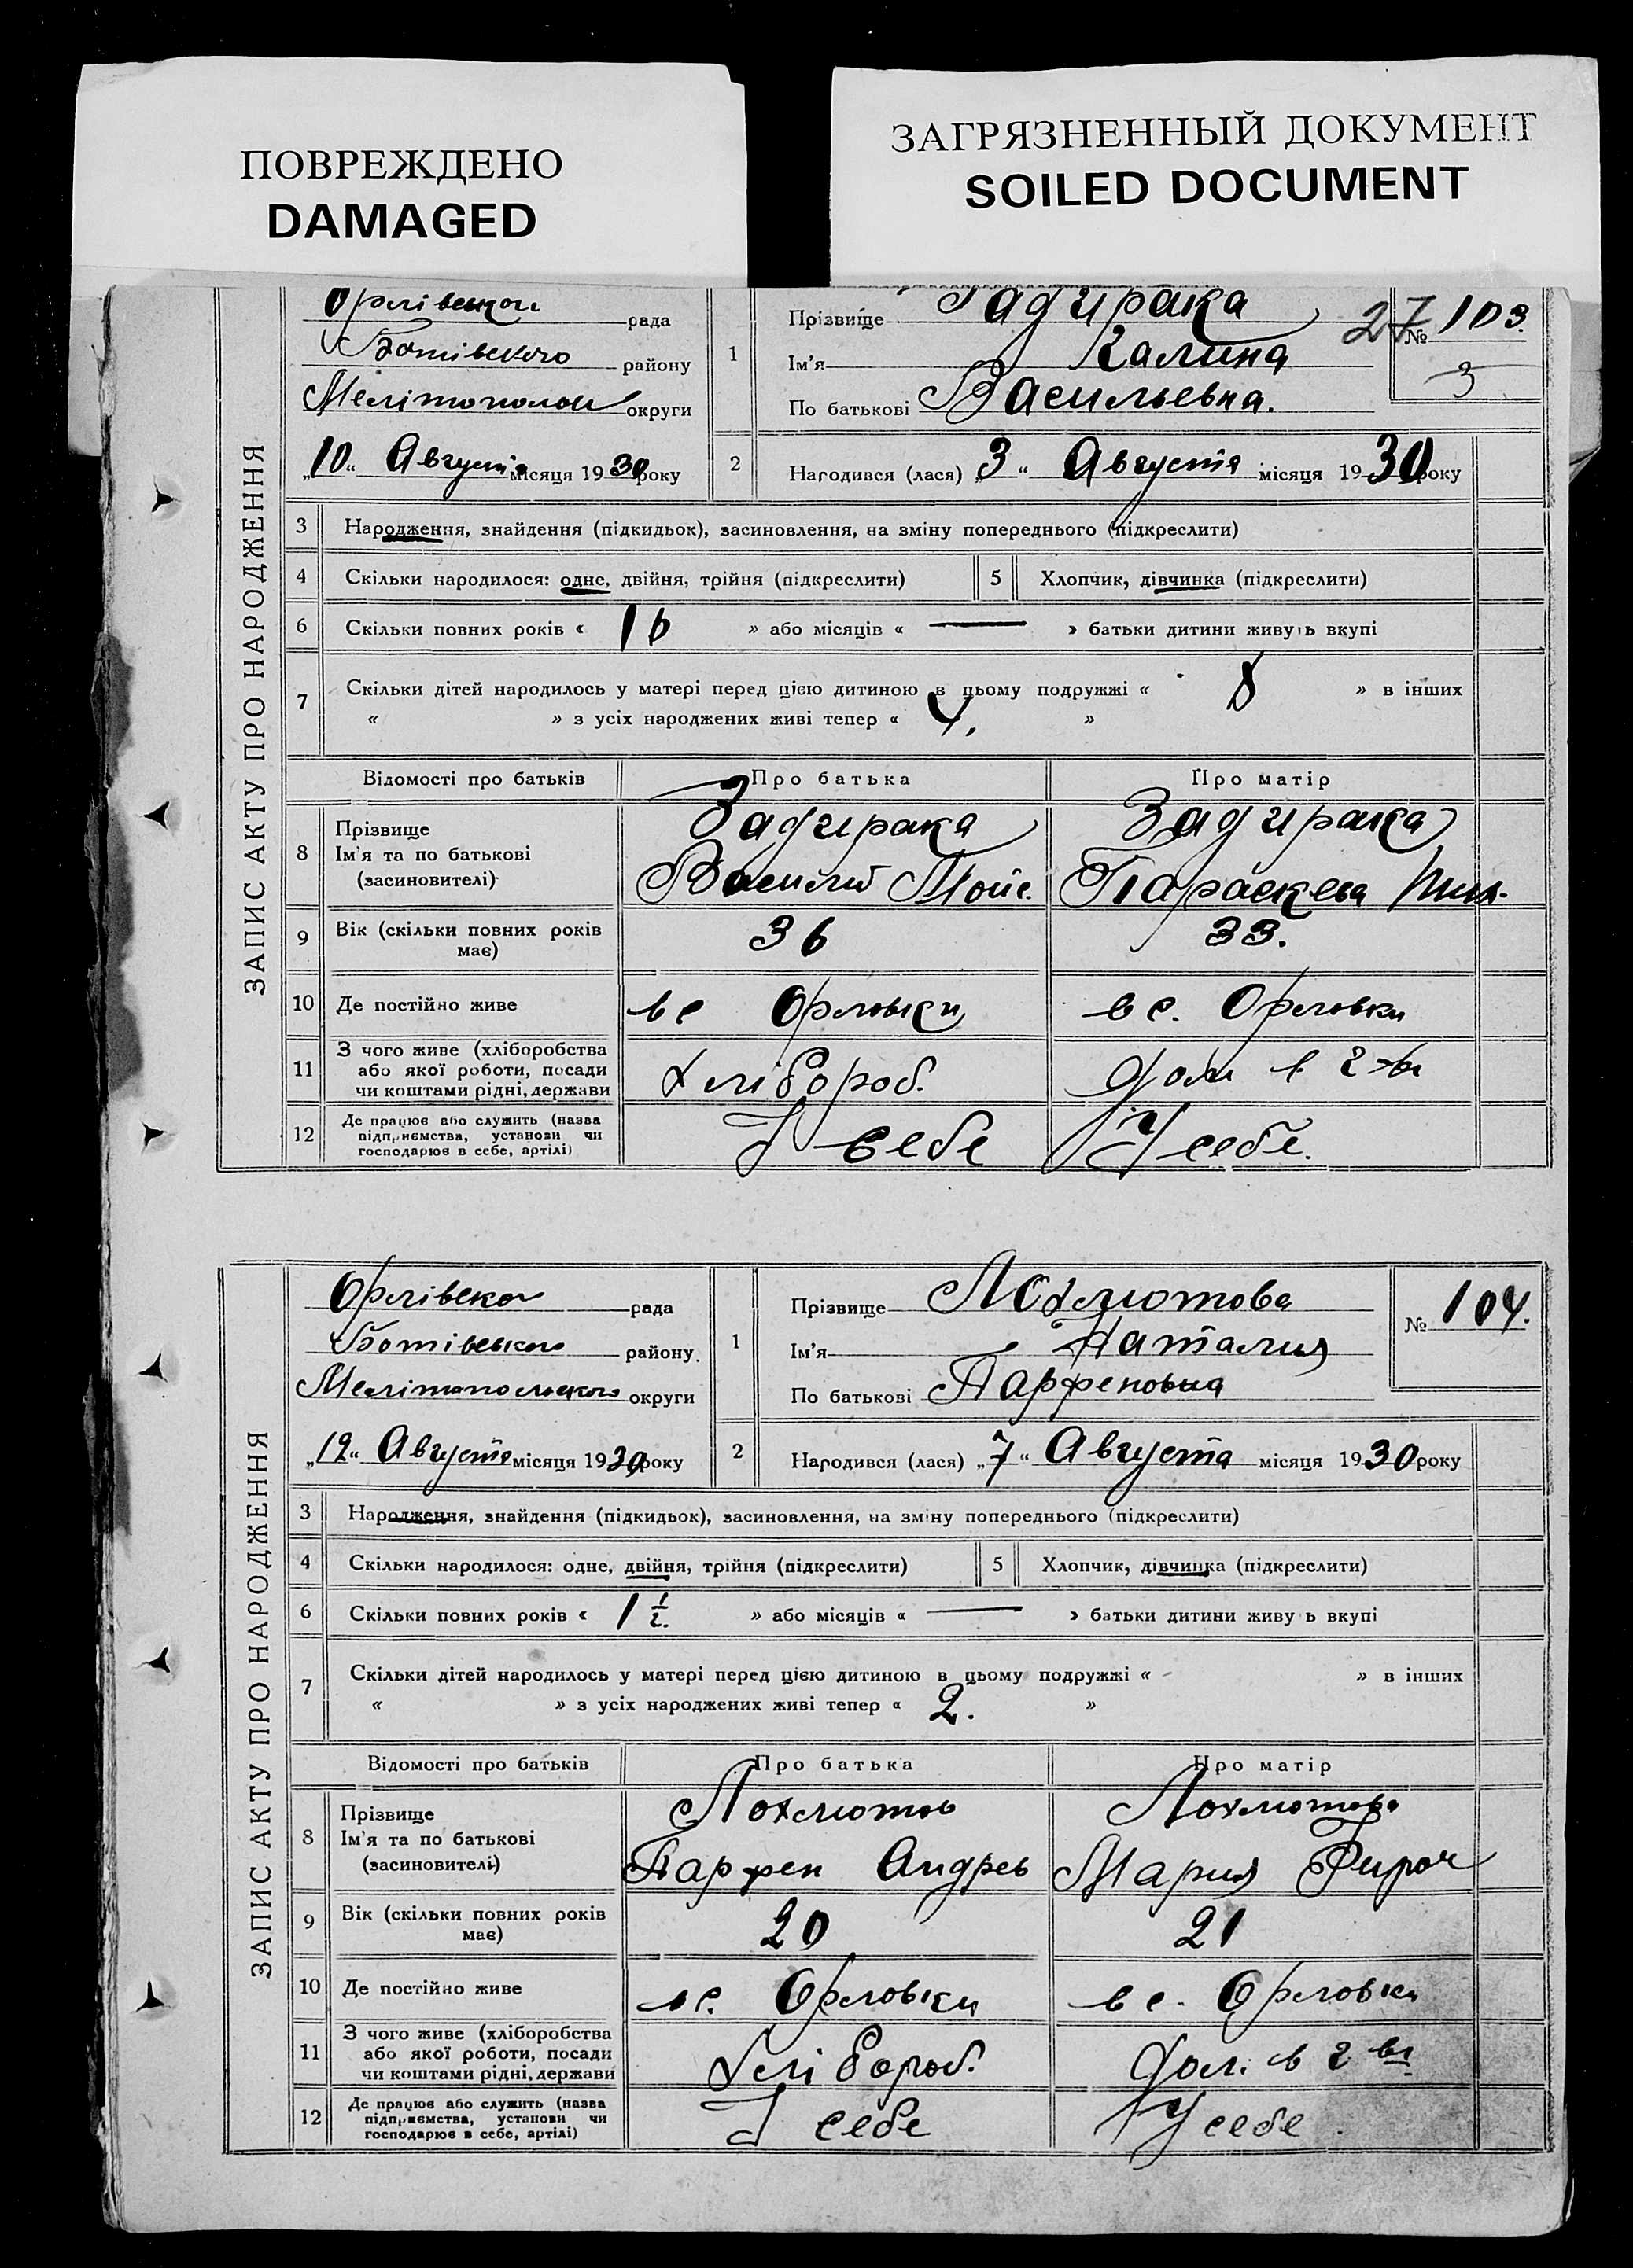 ПОВРЕЖДЕНО
DAMAGED
ЗАГРЯЗНЕННЫЙ ДОКУМЕНТ
SOILED DOCUMENT
ЗАПИС АКТУ ПРО НАРОДЖЕННЯ
рада
Ботівского району
округи
„10“ Августа місяця 1930 року
1
Прізвище
Ім'я Калина
По батькові Васильевна.
27 № 103.
3
2 Нагодився (лася) „3“ Августа місяця 1930 року
3 Народження, знайдення (підкидьок), засиновлення, на зміну попереднього (підкреслити)
4 Скільки народилося: одне, двійня, трійня (підкреслити) 5 Хлопчик, дівчинка (підкреслити)
6 Скільки повних років « 16 » або місяців « — » батьки дитини живуть вкупі
7 Скільки дітей народилось у матері перед цією дитиною в цьому подружжі « 8 » в інших
« » з усіх народжених живі тепер « 4. »
Відомості про батьків Про батька Про матір
8 Прізвище Задирака Задирака
Ім'я та по батькові
(засиновителі) Василий Мойс. Параскева
9 Вік (скільки повних років має) 36 33.
10 Де постійно живе в с Орловки в с. Орловки
11 З чого живе (хліборобства
або якої роботи, посади
чи коштами рідні, держави Хлібороб. дом в 2-ві
12 Де працює або служить (назва
підприємства, установи чи
господарює в себе, артілі) У себе У себе.
ЗАПИС АКТУ ПРО НАРОДЖЕННЯ
Орлівско рада
Ботівського району
Мелітопольского округи
„12“ Августа місяця 1930 року
1
Прізвище Лохмотова
Ім'я Наталия
По батькові Парфеновна
№ 104.
2 Народився (лася) „7“ Августа місяця 1930 року
3 Народження, знайдення (підкидьок), засиновлення, на зміну попереднього (підкреслити)
4 Скільки народилося: одне, двійня, трійня (підкреслити) 5 Хлопчик, дівчинка (підкреслити)
6 Скільки повних років « 1 ½. » або місяців « — » батьки дитини живу ь вкупі
7 Скільки дітей народилось у матері перед цією дитиною в цьому подружжі « - » в інших
« » з усіх народжених живі тепер « 2. »
Відомості про батьків Про батька Про матір
8 Прізвище Лохмотов Лохмотова
Ім'я та по батькові
(засиновителі) Парфен Андрев Мария
9 Вік (скільки повних років має) 20 21
10 Де постійно живе в с. Орловки в с. Орловки
11 З чого живе (хліборобства
або якої роботи, посади
чи коштами рідні, держави Хлібороб. дом. в 2 ві
12 Де працює або служить (назва
підприємства, установи чи
господарює в себе, артілі) У себе У себе